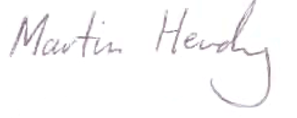 Martin Hendry